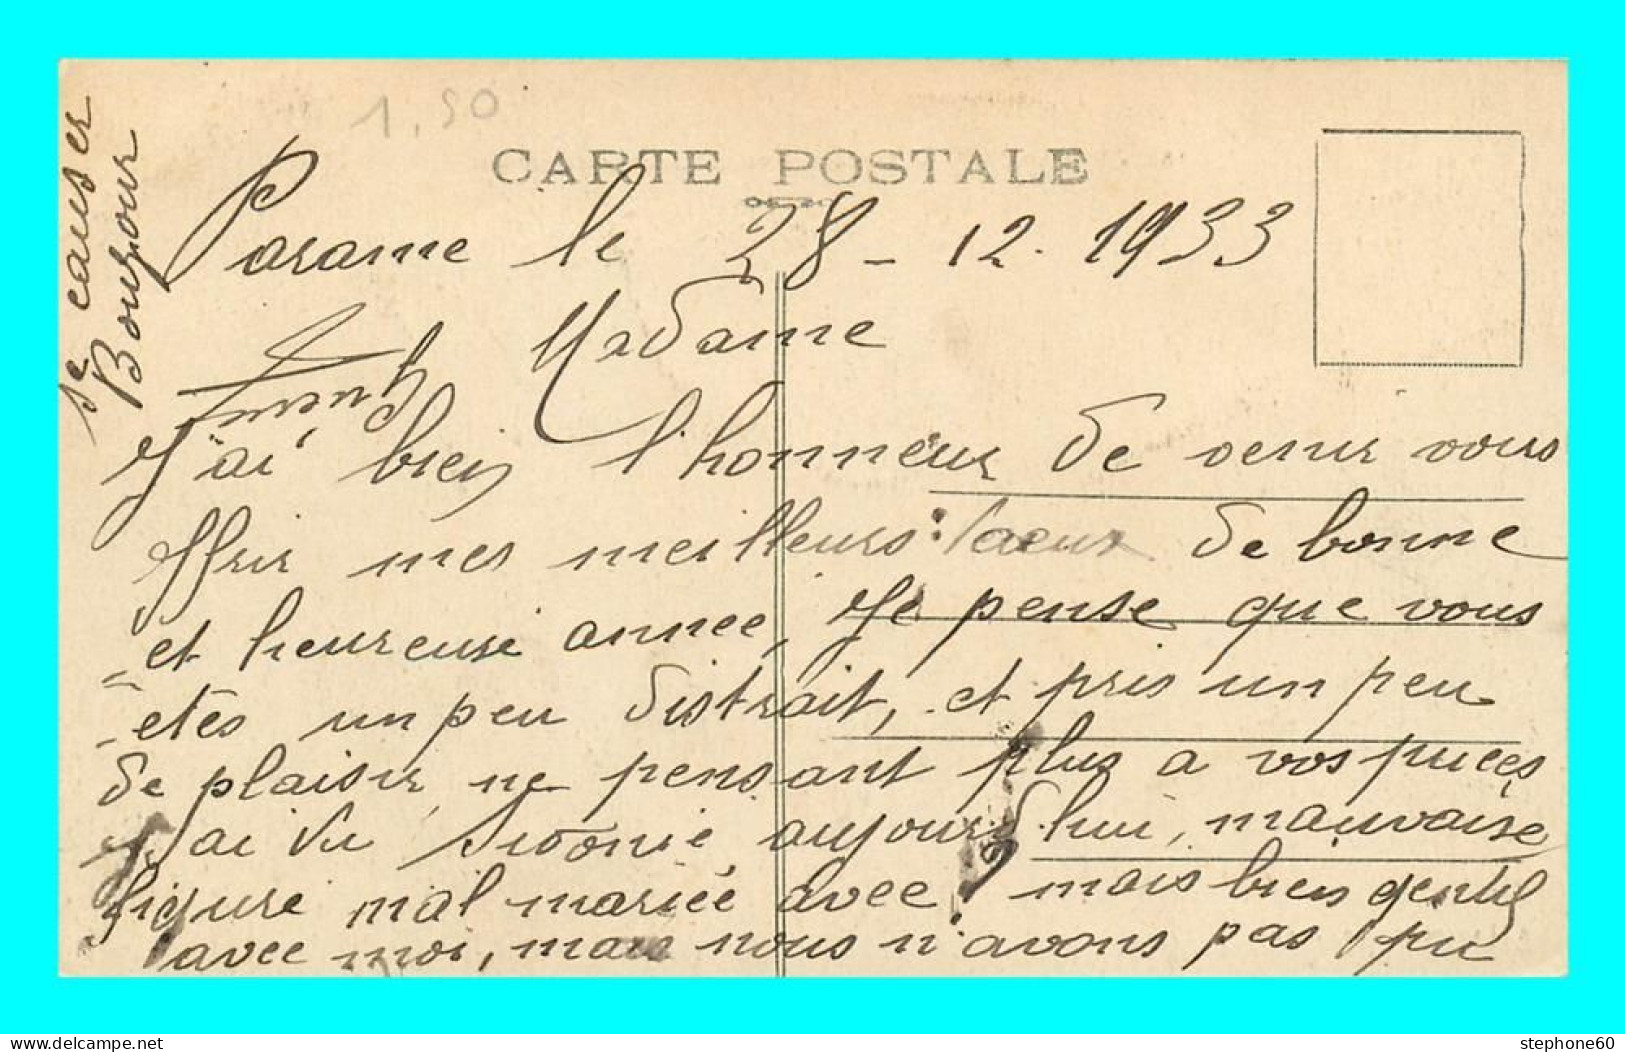 1,50
CARTE POSTALE
Parame le 28 - 12. 1933
Madame
J'ai bien l'honneur de venir vous
offrir mes meilleurs vœux de bonne
et heureuse annee, Je pense que vous
etes un peu distrait, et pris un peu
de plaisir, ne pensant plus a vos puces
J'ai vu aujourd'hui, mauvaise
figure mal mariée avec ! mais bien gentil
avec moi, mais nous n'avons pas pu
se causer
Bonjour
stephone60